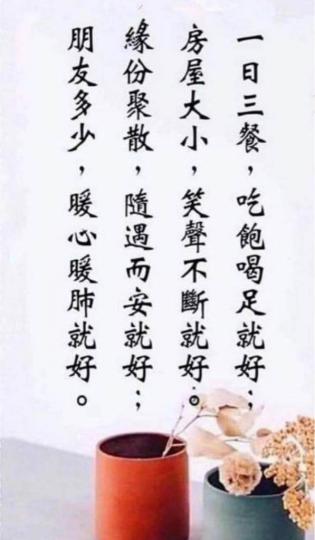 一日三餐，吃飽喝足就好；
房屋大小，笑聲不斷就好。
緣份聚散，隨遇而安就好；
朋友多少，暖心暖肺就好。